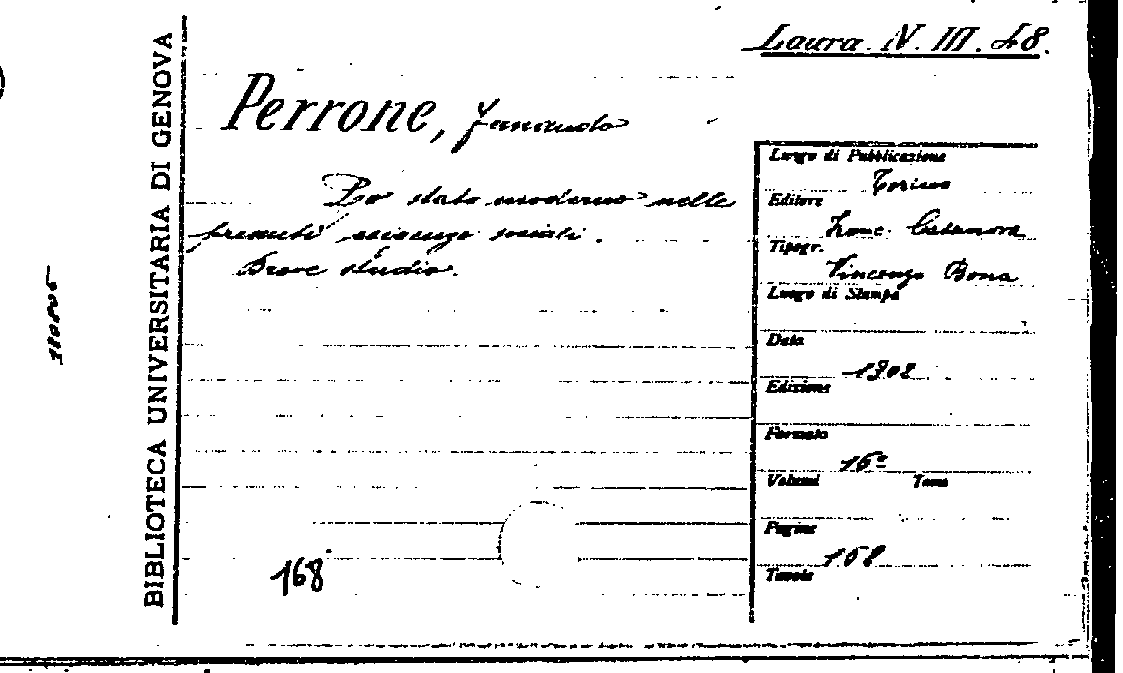 Laura. N. III. 48.
BIBLIOTECA UNIVERSITARIA DI GENOVA
Perrone,
Lo stato moderno nelle
presenti scienze sociali.
Breve studio.
Luogo di Pubblicazione
Torino
Editore
Franc. Casanova
Tipogr.
Vincenzo Bona
Luogo di Stampa
Data
1902
Edizione
Formato
16º
Volumi Tomi
Pagine
158
Tavole
168